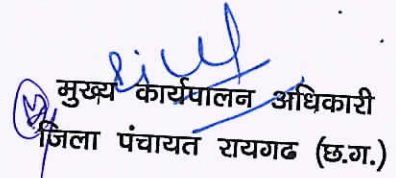 मुख्य कार्यपालन अधिकारी
जिला पंचायत रायगढ (छ.ग.)